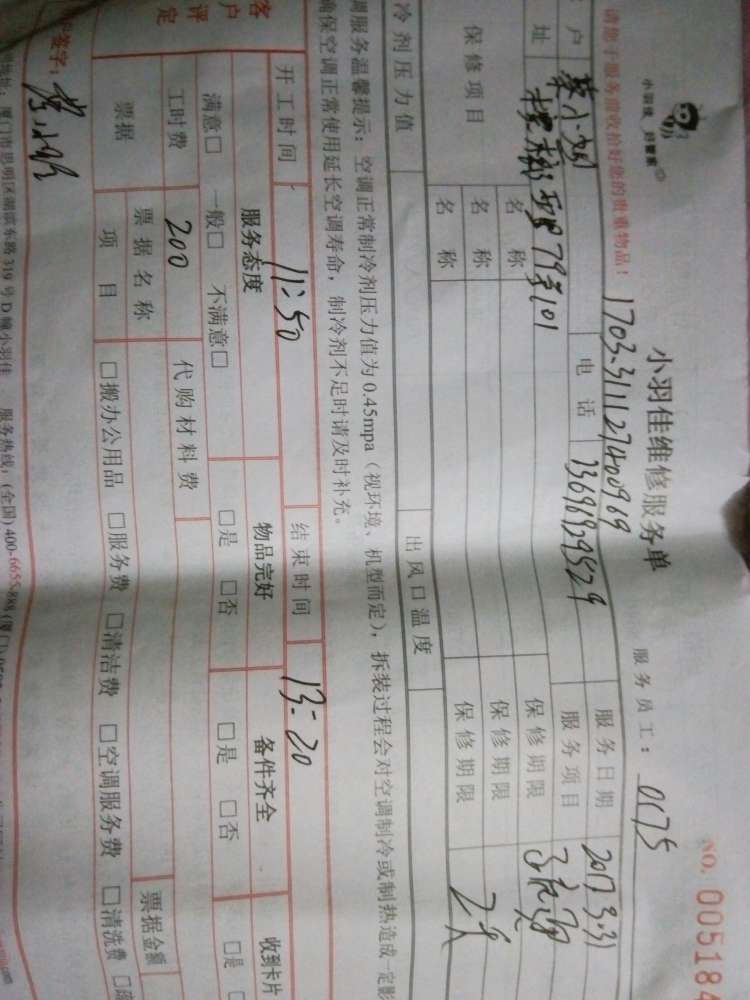 小羽佳 好管家
小羽佳维修服务单
NO. 005184
请您于服务前收拾好您的贵重物品！
170331112740969
服务员工：0175
户
电话
13696929529
服务日期
2017 3.31
址
79号101
服务项目
保修项目
名称
保修期限
名称
保修期限
名称
保修期限
2天
冷剂压力值
出风口温度
调服务温馨提示：空调正常制冷剂压力值为0.45mpa（视环境、机型而定），拆装过程会对空调制冷或制热造成一定影
确保空调正常使用延长空调寿命，制冷剂不足时请及时补充。
开工时间
11:50
结束时间
13:20
客户评定
服务态度
物品完好
备件齐全
收到卡片
满意□ 一般□ 不满意□
□是 □否
□是 □否
□是
工时费
200
代购材料费
票据
票据名称
票据金额
项目
□搬办公用品 □服务费 □清洁费 □空调服务费 □清洗费
签字：
地址：厦门市思明区湖滨东路319号D幢小羽佳 服务热线：(全国)400-6655-888(厦门)